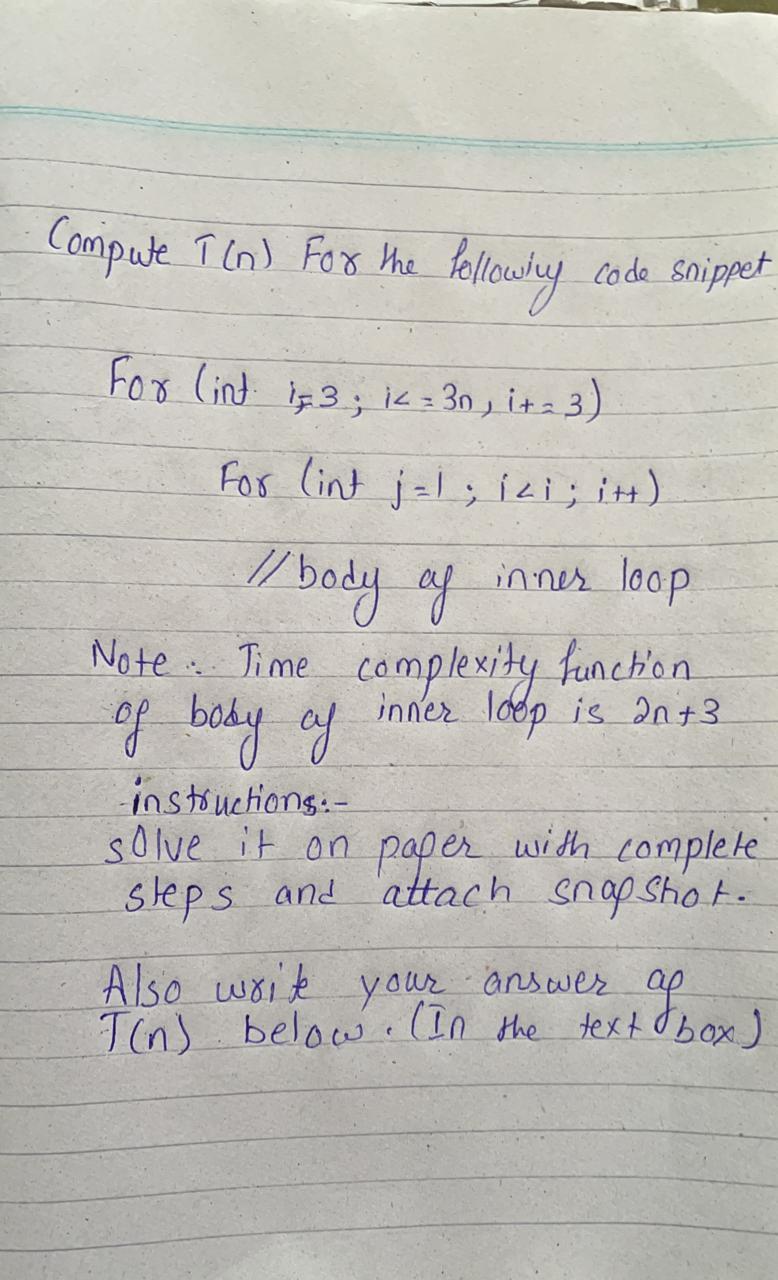 Compute T(n) For the following code snippet
For (int i=3; i<=3n, i+=3)
For (int j=1; i<i; i++)
//body of inner loop
Note:- Time complexity function
of body of inner loop is 2n+3
instructions:-
solve it on paper with complete
steps and attach snapshot.
Also write your answer of
T(n) below. (In the text box)